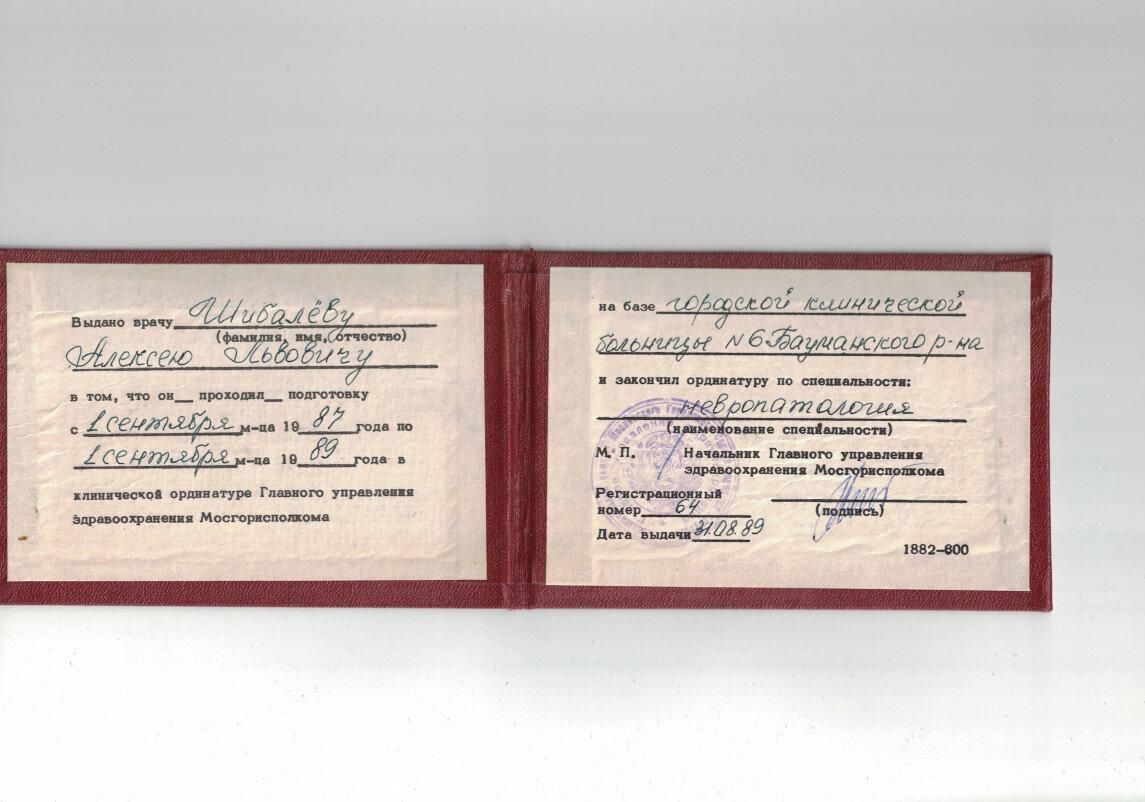 Выдано врачу Шибалёву
(фамилия, имя, отчество)
Алексею Львовичу
в том, что он__ проходил__ подготовку
с 1 сентября м-ца 19 87 года по
1 сентября м-ца 19 89 года в
клинической ординатуре Главного управления
здравоохранения Мосгорисполкома
на базе городской клинической
больницы N6 Бауманского р-на
и закончил ординатуру по специальности:
невропатология
(наименование специальности)
М. П. Начальник Главного управления
здравоохранения Мосгорисполкома
Регистрационный
номер 64 (подпись)
Дата выдачи 31.08.89
1882-600